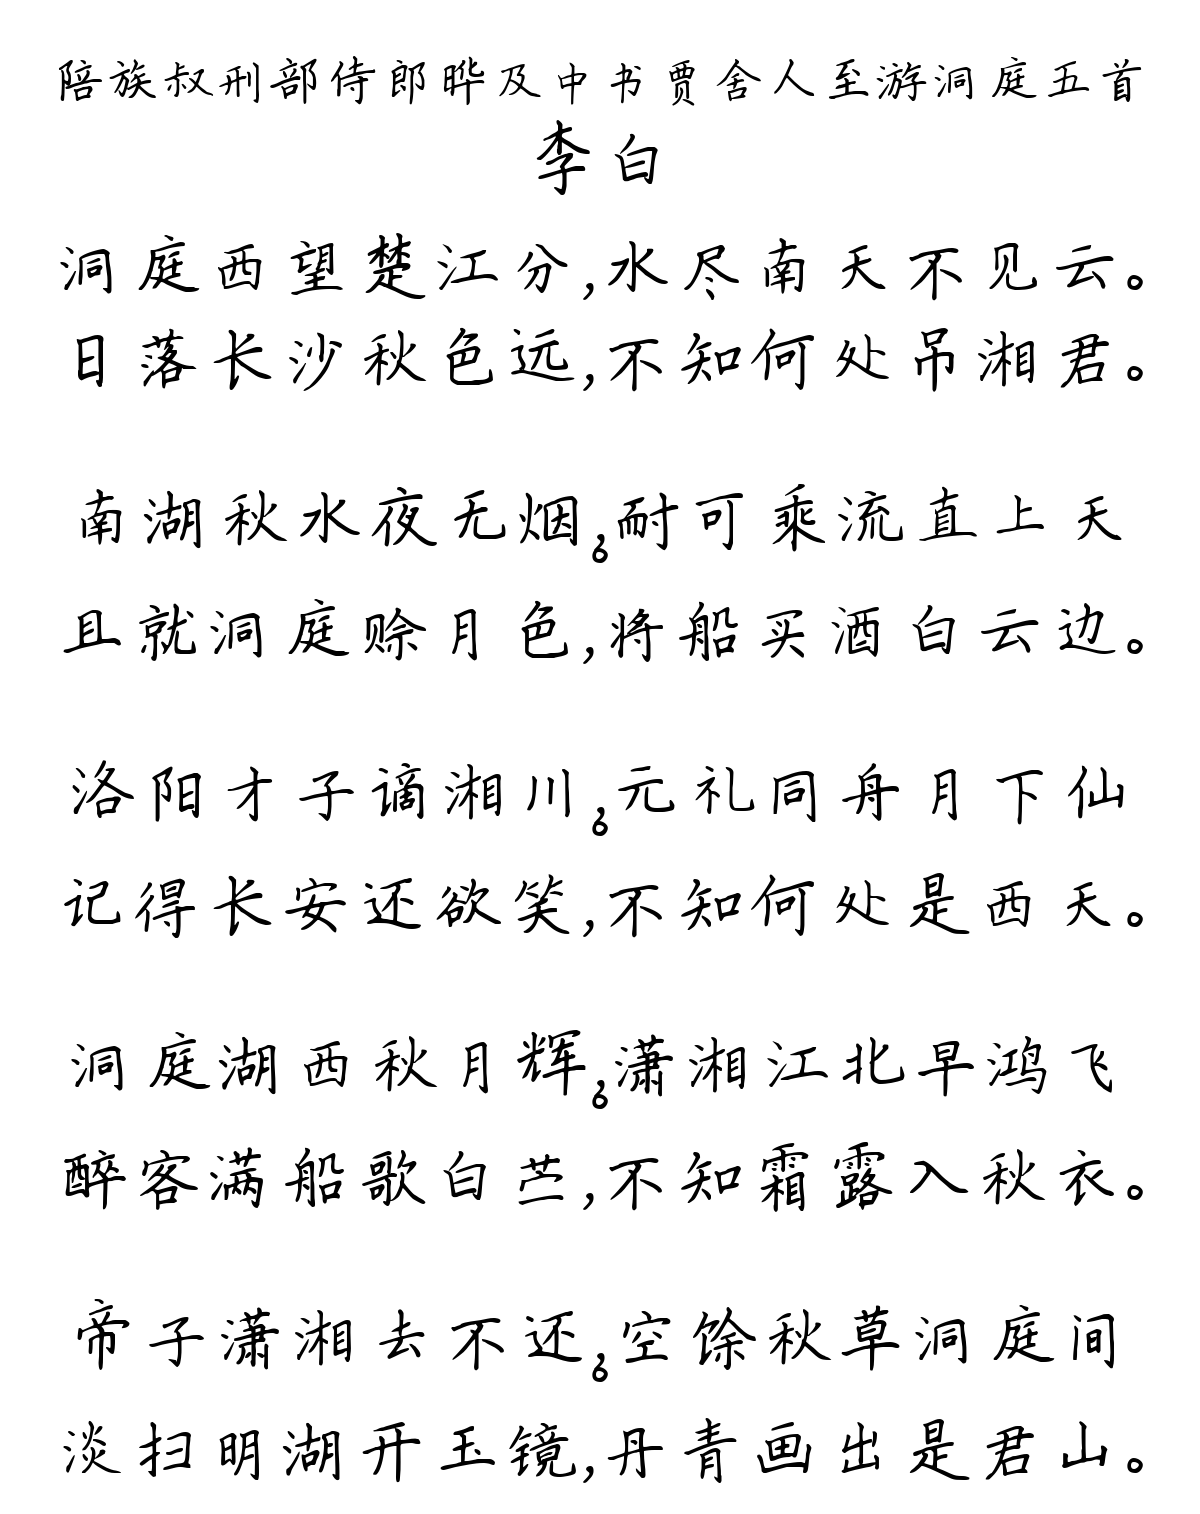 陪族叔刑部侍郎晔及中书贾舍人至游洞庭五首
李白
洞庭西望楚江分,水尽南天不见云。
日落长沙秋色远,不知何处吊湘君。
南湖秋水夜无烟,耐可乘流直上天
。
且就洞庭赊月色,将船买酒白云边。
洛阳才子谪湘川,元礼同舟月下仙
。
记得长安还欲笑,不知何处是西天。
洞庭湖西秋月辉,潇湘江北早鸿飞
。
醉客满船歌白苎,不知霜露入秋衣。
帝子潇湘去不还,空馀秋草洞庭间
。
淡扫明湖开玉镜,丹青画出是君山。